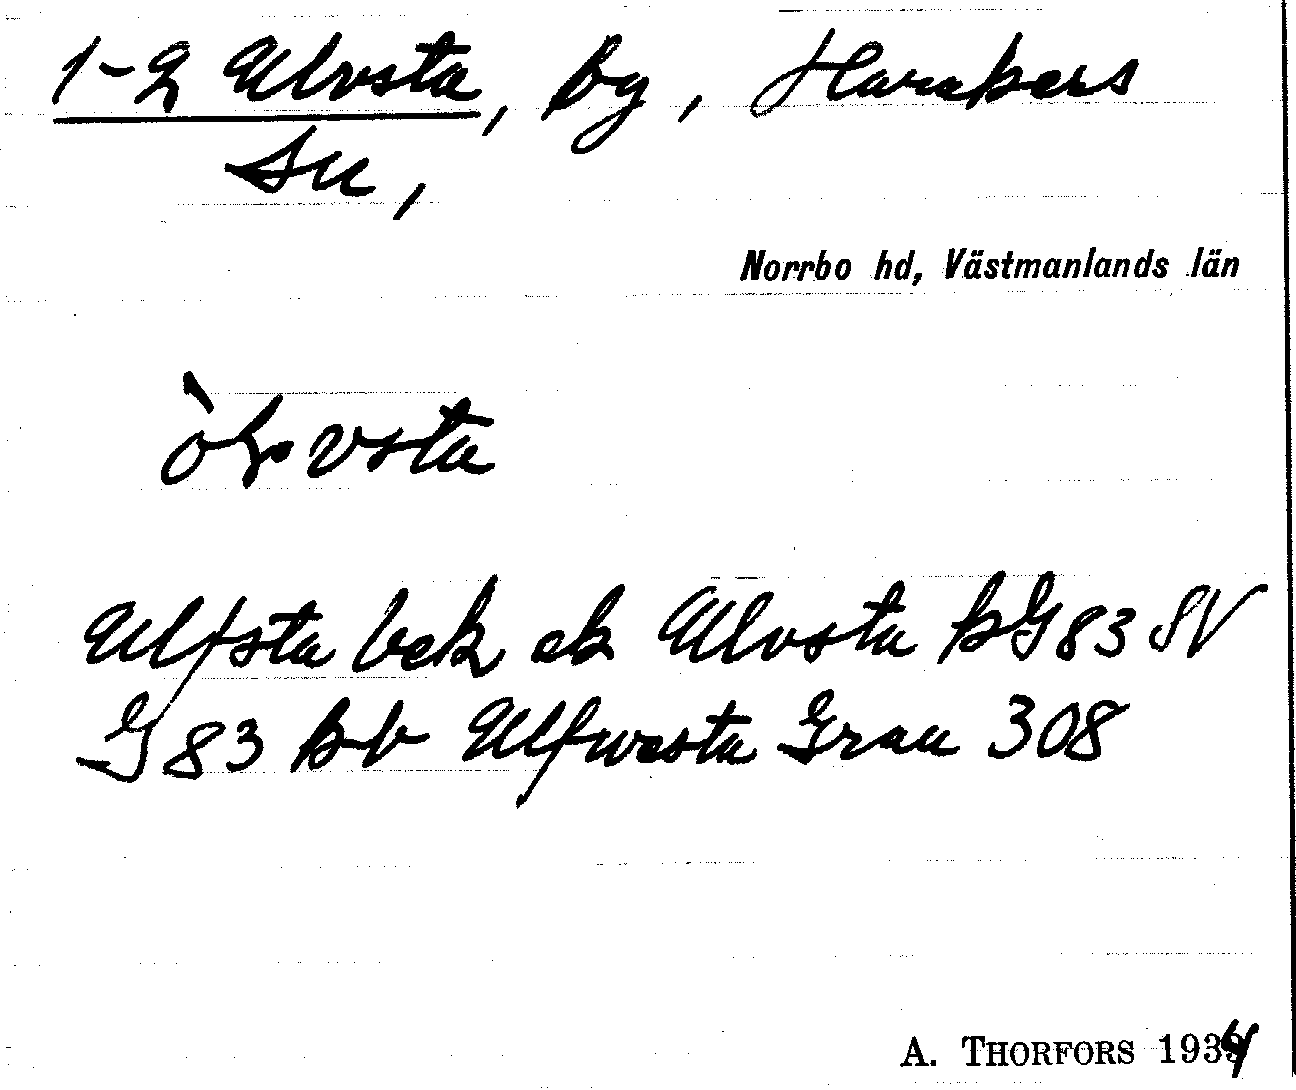 1-2 Ulvsta, by, Harakers
sn,
Norrbo hd, Västmanlands län
Ulfsta bek ek Ulvsta bG83 SV
G83 bV Ulfwesta Grau 308
A. THORFORS 1934